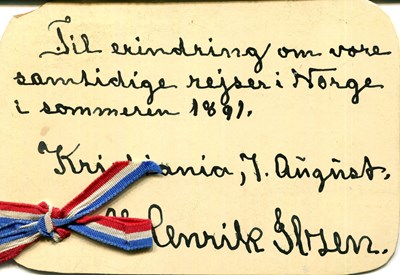 Til erindring om vore
samtidige rejser i Norge
i sommeren 1891.
Kristiania, 7. August.
Henrik Ibsen.